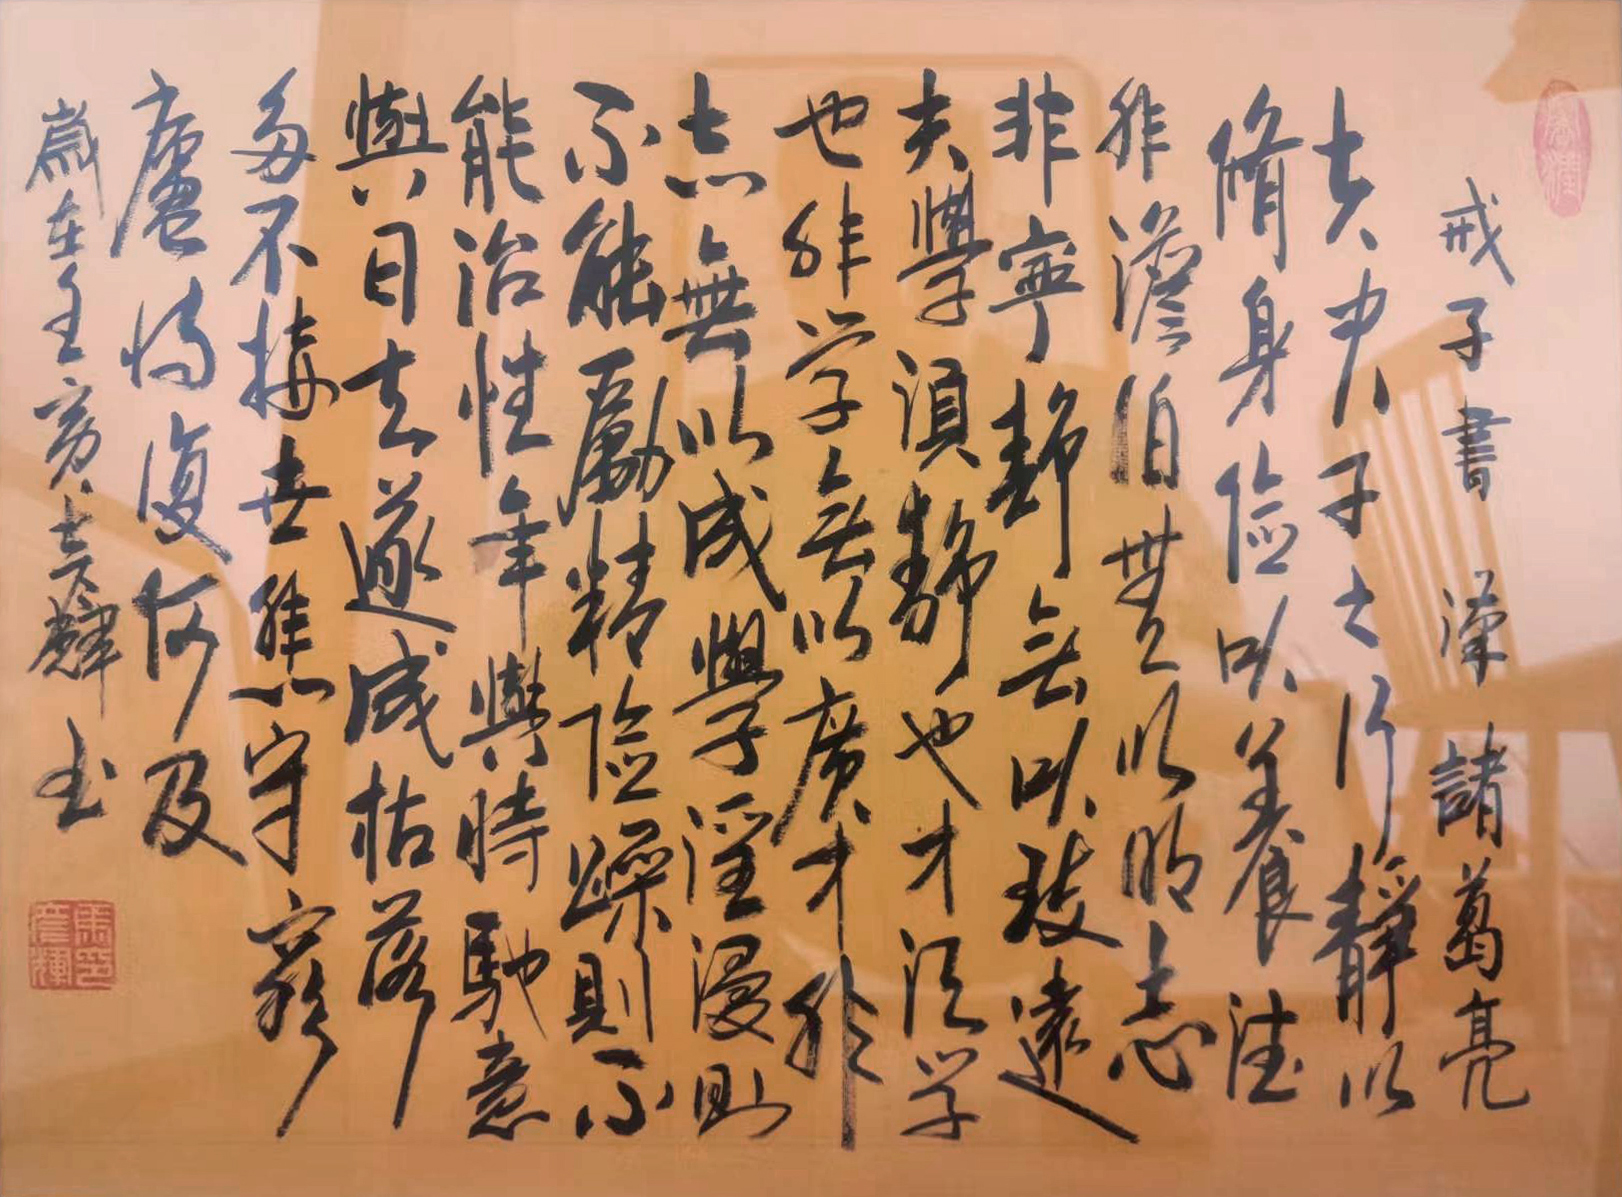 戒子書 漢 諸葛亮
夫君子之行靜以
脩身儉以養德
非澹泊無以明志
非寧靜無以致遠
夫學須靜也才須学
也非学無以廣才非
志無以成學淫漫則
不能勵精險躁則不
能治性年與時馳意
與日去遂成枯落
多不接世悲守窮
廬將復何及
歲在壬寅輝書